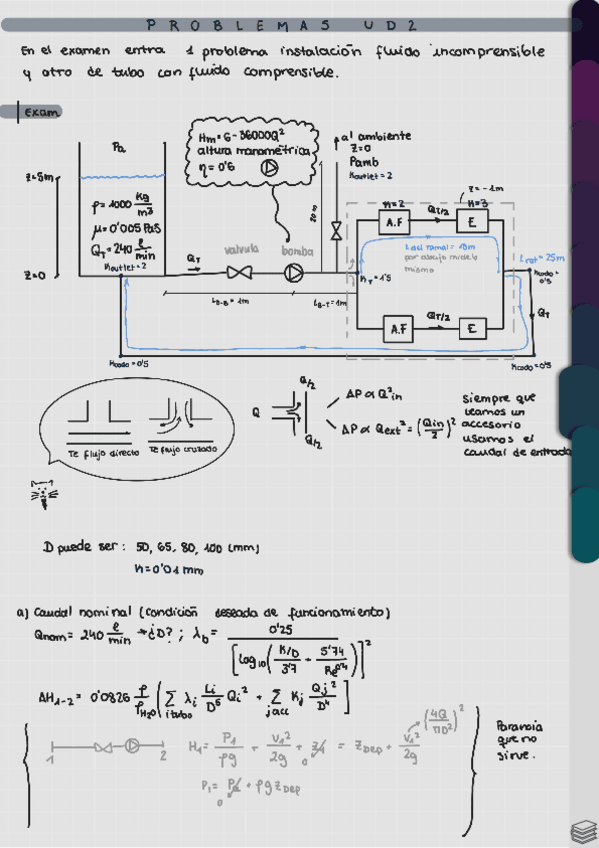 PROBLEMAS UD2
En el examen entra 1 problema instalación fluido incomprensible
y otro de tubo con fluido comprensible.
Exam
Pa
Z=5m
ρ=1000 kg/m³
μ=0'005 Pa·s
Q_T=240 ℓ/min
K_outlet=2
Z=0
H_m=6-36000Q²
altura manométrica
η=0'6
al ambiente
Z=0
Pamb
K_outlet=2
20 m
Q_T
valvula
bomba
L_B-T=1m
K_T=1'5
Z=-1m
K=2
A.F
Q_T/2
E
L del ramal=10m
por abajo mide lo
mismo
A.F
Q_T/2
E
L ret=25m
K_codo=0'5
Q_T
K_codo=0'5
K_codo=0'5
Te flujo directo
Te flujo cruzado
Q
Q/2
Q/2
ΔP ∝ Q²in
ΔP ∝ Qext²=(Qin/2)²
siempre que
veamos un
accesorio
usamos el
caudal de entrada
D puede ser: 50, 65, 80, 100 (mm)
K=0'01 mm
a) Caudal nominal (condición deseada de funcionamiento)
Qnom=240 ℓ/min →¿D? ; λ_b= 0'25/[log₁₀(K/D/3'7 + 5'74/Re^0'9)]²
ΔH₁₋₂=0'0826 ρ/ρ_H2O [∑ i tubo λi Li/D⁵ Qi² + ∑ j acc Kj Qj²/D⁴]
1
2
H₁= P₁/ρg + v₁²/2g + z₁ = z_Dep + v₁²/2g
0
(4Q/πD²)²
P₁= Pa + ρg z_Dep
0
Paranoia
que no
sirve.